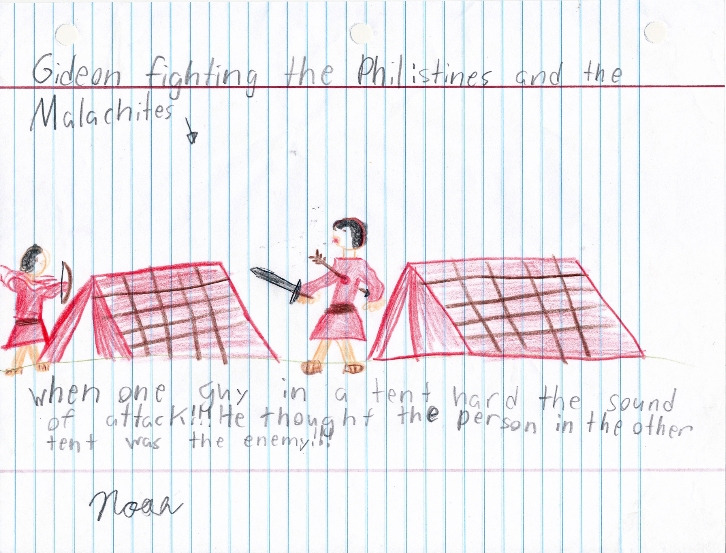 Gideon fighting the Philistines and the
Malachites
when one guy in a tent hard the sound
of attack!!! He thought the person in the other
tent was the enemy!!!
Noaa